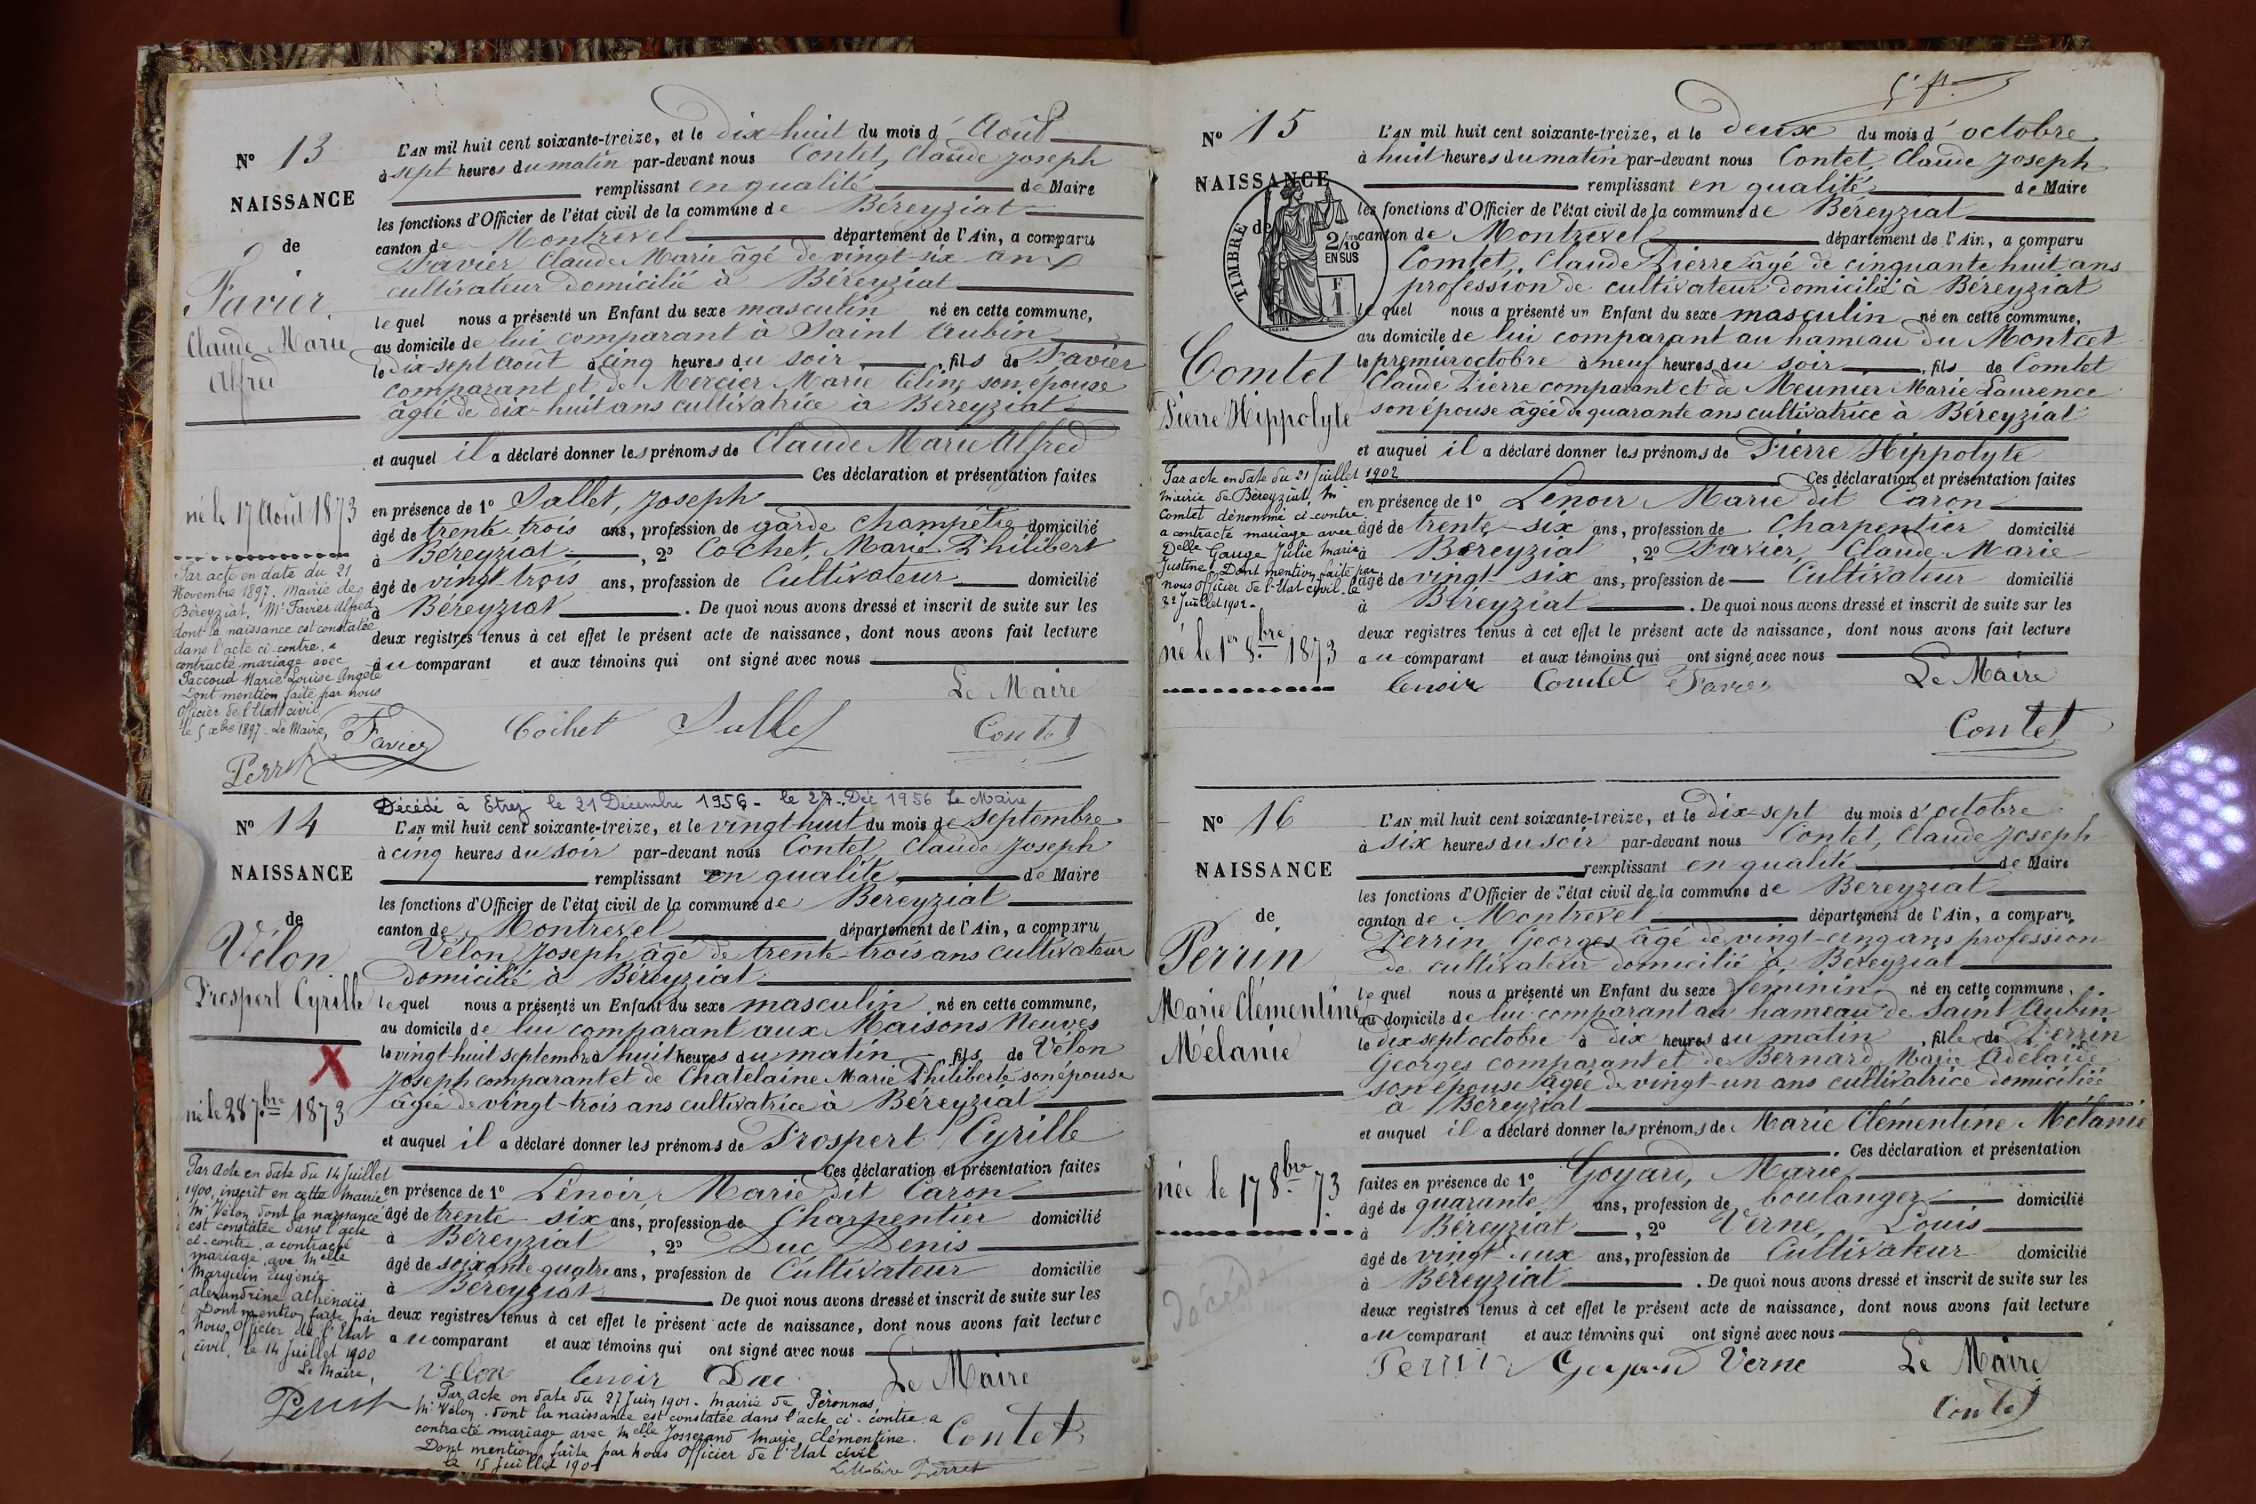 N° 13
NAISSANCE
de
Favier
Claude Marie
Alfred
né le 17 Août 1873
Par acte en date du 21
Novembre 1897. Mairie de
Béreyziat. Mr Favier Alfred
dont la naissance est constatée
dans l'acte ci-contre, a
contracté mariage avec
Paccoud Marie Louise Angèle
Dont mention faite par nous
Officier de l'Etat civil
le 5 xbre 1897. Le Maire,
Perret
L'AN mil huit cent soixante-treize, et le dix-huit du mois d'Août
à sept heures du matin par-devant nous Contet, Claude Joseph
remplissant en qualité de Maire
les fonctions d'Officier de l'état civil de la commune de Béreyziat
canton de Montrevel département de l'Ain, a comparu
Favier Claude Marie âgé de vingt-six ans
cultivateur domicilié à Béreyziat
lequel nous a présenté un Enfant du sexe masculin né en cette commune,
au domicile de lui comparant à Saint Aubin
le dix-sept Août à cinq heures du soir, fils de Favier
comparant et de Mercier Marie Céline son épouse
âgée de dix-huit ans cultivatrice à Béreyziat
et auquel il a déclaré donner les prénoms de Claude Marie Alfred
Ces déclaration et présentation faites
en présence de 1° Sallet, Joseph
âgé de trente-trois ans, profession de garde champêtre domicilié
à Béreyziat, 2° Cochet, Marie Philibert
âgé de vingt trois ans, profession de Cultivateur domicilié
à Béreyziat. De quoi nous avons dressé et inscrit de suite sur les
deux registres tenus à cet effet le présent acte de naissance, dont nous avons fait lecture
au comparant et aux témoins qui ont signé avec nous
Le Maire
Favier Cochet Sallet Contet
N° 14
NAISSANCE
de
Vélon
Prospert Cyrille
X
né le 28 7bre 1873
Par acte en date du 14 Juillet
1900, inscrit en cette Mairie
Mr Vélon dont la naissance
est constatée dans l'acte
ci-contre, a contracté
mariage avec Melle
Marguin Eugénie
Alexandrine Athénaïs
Dont mention faite par
Nous, Officier de l'Etat
civil, le 14 Juillet 1900
Le Maire,
Perret
Décédé à Etrez le 21 Décembre 1956 - le 27. Déc 1956 Le Maire
L'AN mil huit cent soixante-treize, et le vingt-huit du mois de septembre
à cinq heures du soir par-devant nous Contet, Claude Joseph
remplissant en qualité de Maire
les fonctions d'Officier de l'état civil de la commune de Béreyziat
canton de Montrevel département de l'Ain, a comparu
Vélon Joseph âgé de trente-trois ans cultivateur
domicilié à Béreyziat
lequel nous a présenté un Enfant du sexe masculin né en cette commune,
au domicile de lui comparant aux Maisons Neuves
le vingt-huit septembre à huit heures du matin fils de Vélon
Joseph comparant et de Chatelaine Marie Philiberte son épouse
âgée de vingt-trois ans cultivatrice à Béreyziat
et auquel il a déclaré donner les prénoms de Prospert Cyrille
Ces déclaration et présentation faites
en présence de 1° Lenoir Marie dit Caron
âgé de trente-six ans, profession de Charpentier domicilié
à Béreyziat, 2° Duc Denis
âgé de soixante quatre ans, profession de Cultivateur domicilié
à Béreyziat De quoi nous avons dressé et inscrit de suite sur les
deux registres tenus à cet effet le présent acte de naissance, dont nous avons fait lecture
au comparant et aux témoins qui ont signé avec nous
Vélon Lenoir Duc Le Maire
Par acte en date du 27 Juin 1901. Mairie de Péronnas,
Mr Vélon dont la naissance est constatée dans l'acte ci-contre a
contracté mariage avec Melle Josserand Marie Clémentine.
Dont mention faite par nous Officier de l'Etat civil
le 15 Juillet 1901
Le Maire Perret
Contet
N° 15
NAISSANCE
de
TIMBRE
2/10
EN SUS
F
1
Comtet
Pierre Hippolyte
Par acte en date du 21 Juillet 1902
Mairie de Béreyziat, Mr
Comtet dénommé ci-contre
a contracté mariage avec
Delle Gauge Julie Marie
Justine. Dont mention faite par
nous Officier de l'Etat civil. le
22 Juillet 1902.
né le 1er 8bre 1873
L'AN mil huit cent soixante-treize, et le deux du mois d'octobre
à huit heures du matin par-devant nous Contet, Claude Joseph
remplissant en qualité de Maire
les fonctions d'Officier de l'état civil de la commune de Béreyziat
canton de Montrevel département de l'Ain, a comparu
Comtet, Claude Pierre âgé de cinquante huit ans
profession de cultivateur domicilié à Béreyziat
lequel nous a présenté un Enfant du sexe masculin né en cette commune,
au domicile de lui comparant au hameau du Montcet
le premier octobre à neuf heures du soir, fils de Comtet
Claude Pierre comparant et de Meunier Marie Laurence
son épouse âgée de quarante ans cultivatrice à Béreyziat
et auquel il a déclaré donner les prénoms de Pierre Hippolyte
Ces déclaration et présentation faites
en présence de 1° Lenoir Marie dit Caron
âgé de trente-six ans, profession de Charpentier domicilié
à Béreyziat, 2° Favier, Claude Marie
âgé de vingt-six ans, profession de Cultivateur domicilié
à Béreyziat. De quoi nous avons dressé et inscrit de suite sur les
deux registres tenus à cet effet le présent acte de naissance, dont nous avons fait lecture
au comparant et aux témoins qui ont signé avec nous
Lenoir Comtet Favier Le Maire
Contet
N° 16
NAISSANCE
de
Perrin
Marie Clémentine
Mélanie
née le 17 8bre 73
Décédée
L'AN mil huit cent soixante-treize, et le dix-sept du mois d'octobre
à six heures du soir par-devant nous Contet, Claude Joseph
remplissant en qualité de Maire
les fonctions d'Officier de l'état civil de la commune de Béreyziat
canton de Montrevel département de l'Ain, a comparu
Perrin Georges âgé de vingt-cinq ans profession
de cultivateur domicilié à Béreyziat
lequel nous a présenté un Enfant du sexe féminin né en cette commune,
au domicile de lui comparant au hameau de Saint Aubin
le dix sept octobre à dix heures du matin, fille de Perrin
Georges comparant et de Bernard, Marie Adelaïde
son épouse âgée de vingt-un ans cultivatrice domiciliée
à Béreyziat
et auquel il a déclaré donner les prénoms de Marie Clémentine Mélanie
Ces déclaration et présentation
faites en présence de 1° Goyard, Marie
âgé de quarante ans, profession de boulanger domicilié
à Béreyziat, 2° Verne, Louis
âgé de vingt deux ans, profession de Cultivateur domicilié
à Béreyziat. De quoi nous avons dressé et inscrit de suite sur les
deux registres tenus à cet effet le présent acte de naissance, dont nous avons fait lecture
au comparant et aux témoins qui ont signé avec nous
Perrin Goyard Verne Le Maire
Contet